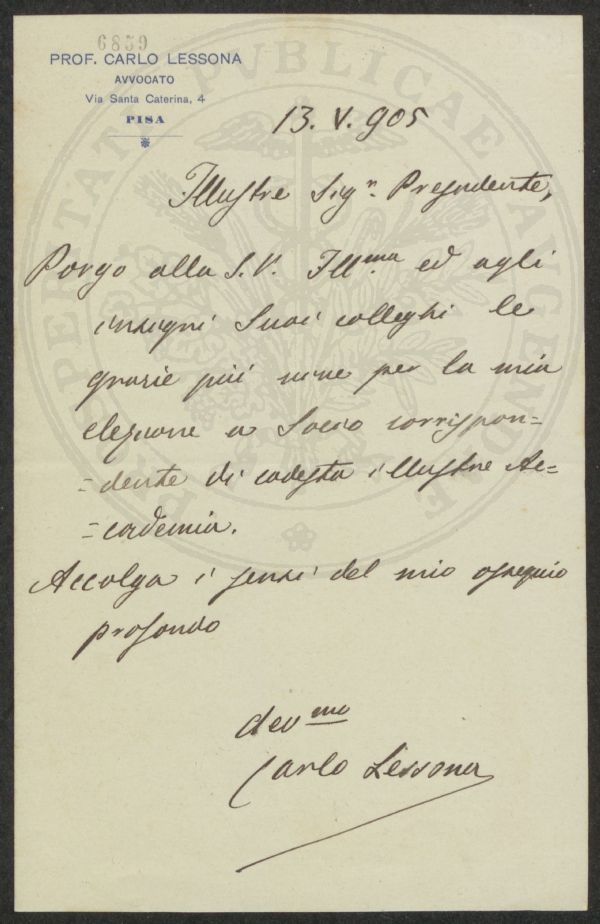 6859
PROF. CARLO LESSONA
AVVOCATO
Via Santa Caterina, 4
PISA
13. V. 905
Illustre Sigr. Presidente,
Porgo alla S. V. Ill.ma ed agli
insigni Suoi colleghi le
grazie più vive per la mia
elezione a Socio corrispon=
=dente di codesta illustre Ac=
=cademia.
Accolga i sensi del mio ossequio
profondo
devmo
Carlo Lessona